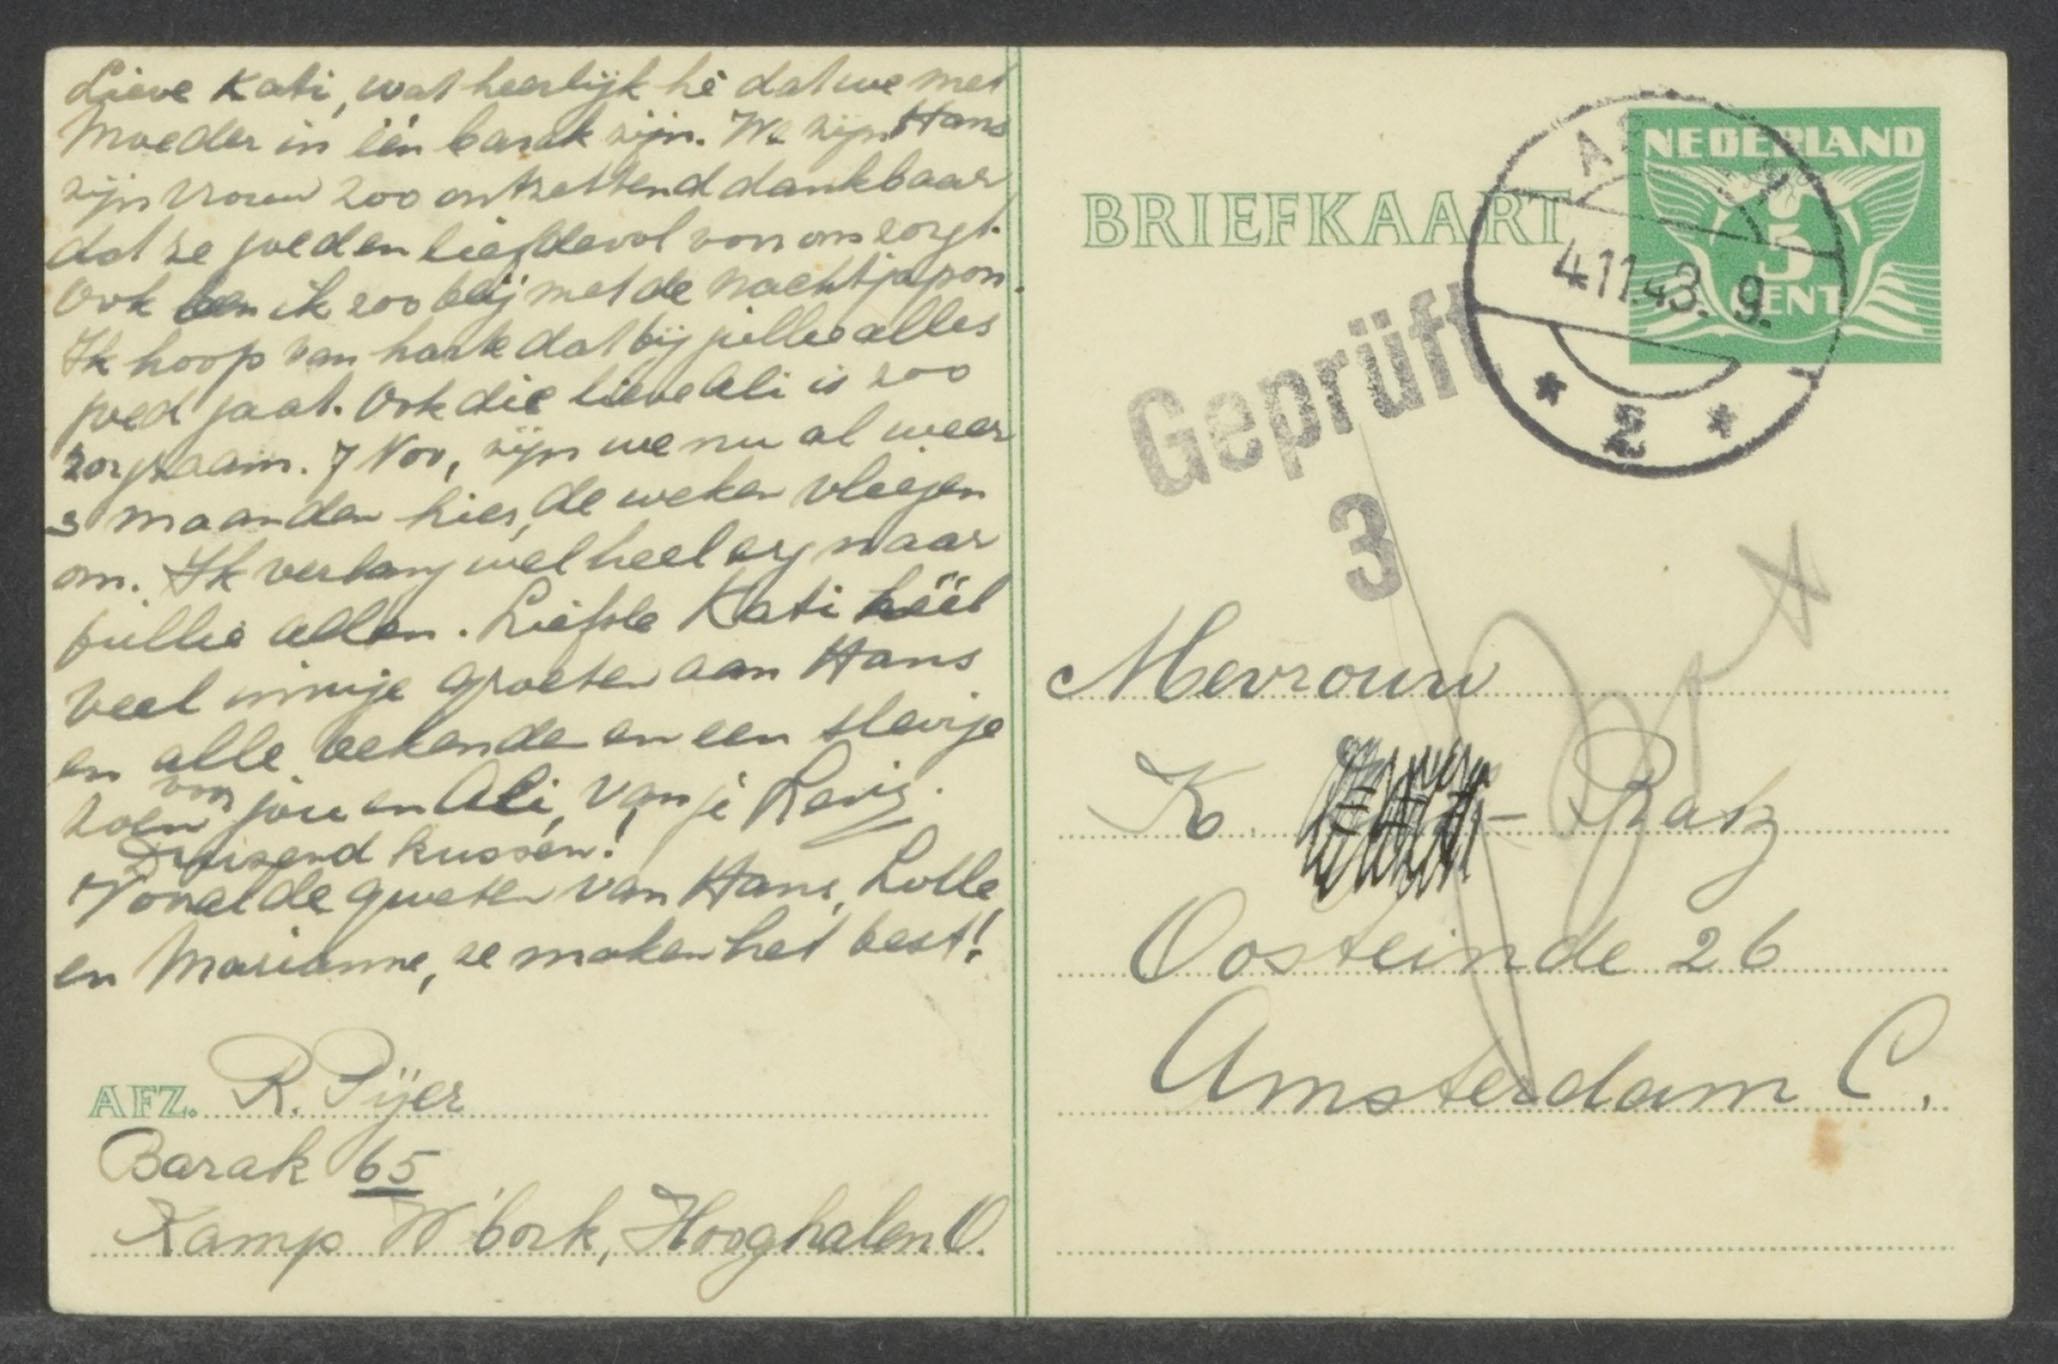 Lieve Kati, wat heerlijk hè dat we met
Moeder in één barak zijn. We zijn Hans
zijn vrouw zoo ontzettend dankbaar
dat ze goed en liefdevol voor ons zorgt.
Ook ben ik zoo blij met de nachtjapon.
Ik hoop van harte dat bij jullie alles
goed gaat. Ook die lieve Ali is zoo
zorgzaam. 7 Nov, zijn we nu al weer
3 maanden hier, de weken vliegen
om. Ik verlang wel heel erg naar
jullie allen. Liefste Kati héél
veel innige groeten aan Hans
en alle bekende en een stevige
zoen voor jou en Ali, van je
Duizend kussen!
Vooral de groeten van Hans, Lotte
en Marianne, ze maken het best!
AFZ. R. Pijer
Barak 65
Kamp W'bork, Hooghalen O.
BRIEFKAART
NEDERLAND
5
CENT
4.11.43. 9.
* 2 *
Geprüft
3
Mevrouw
K. - Ratz
Oosteinde 26
Amsterdam C.